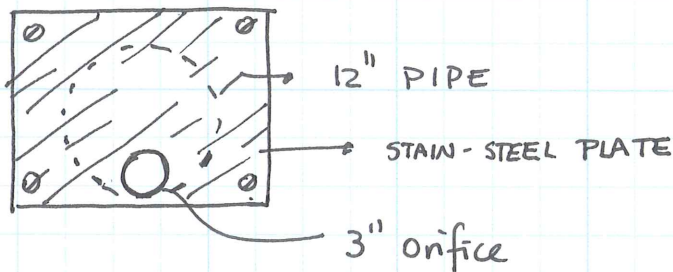 12" PIPE
STAIN-STEEL PLATE
3" orifice